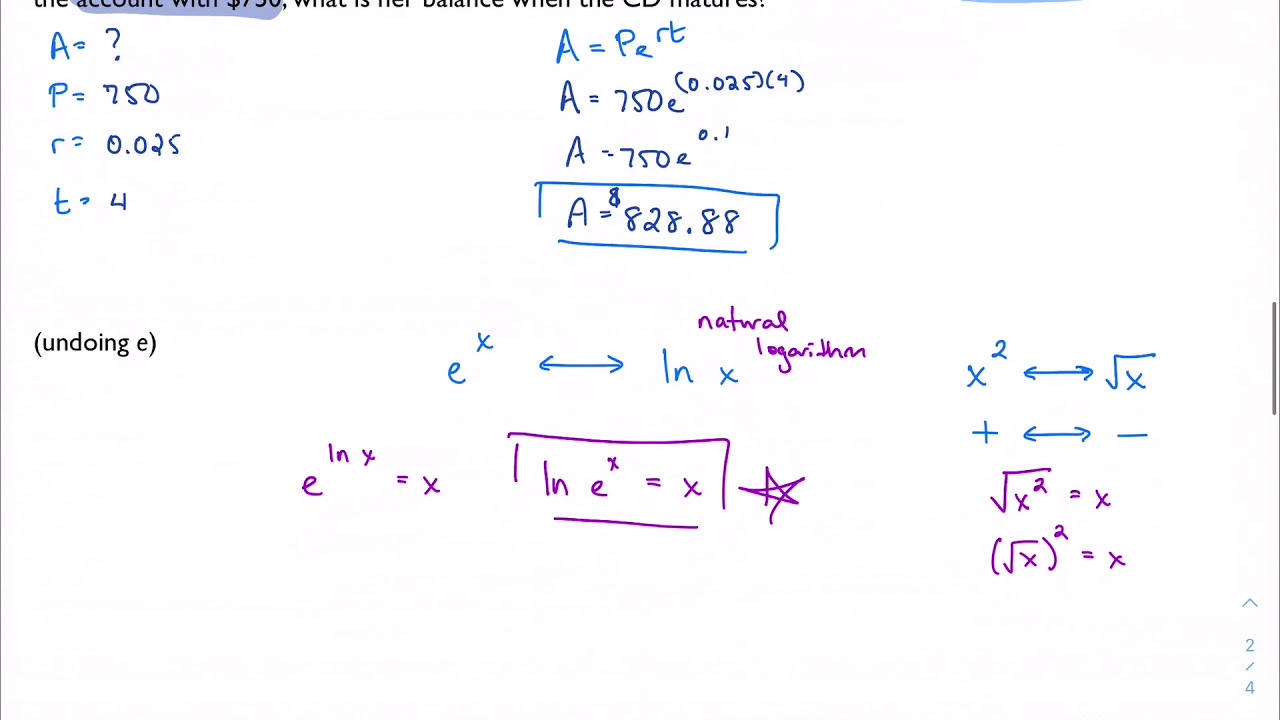 the account with $750, what is her balance when the CD matures?
A = ?
P = 750
r = 0.025
t = 4
A = Pe^rt
A = 750e^(0.025)(4)
A = 750e^0.1
A = $828.88
(undoing e)
e^x ⟷ ln x
natural
logarithm
x² ⟷ √x
+ ⟷ −
e^ln x = x
ln e^x = x
√x² = x
(√x)² = x
2
/
4